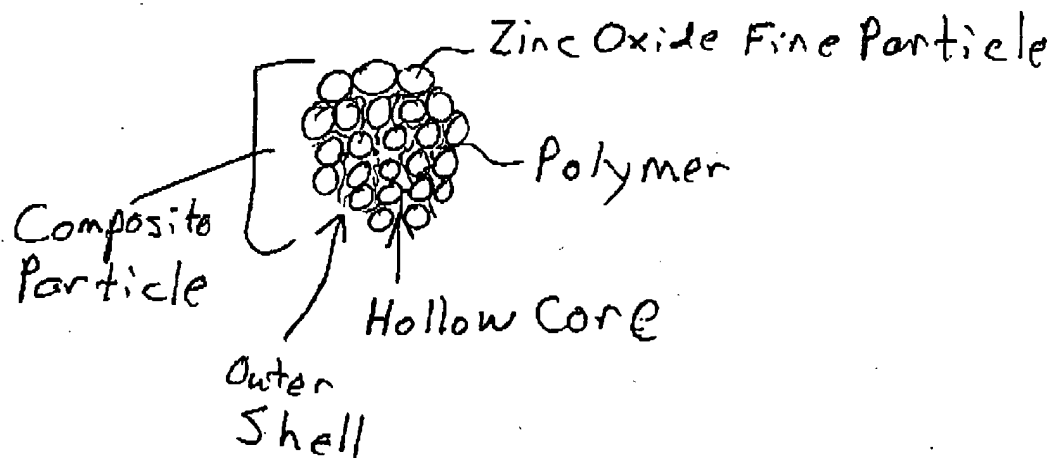 Zinc Oxide Fine Particle
Polymer
Composite
Particle
Hollow Core
Outer
Shell